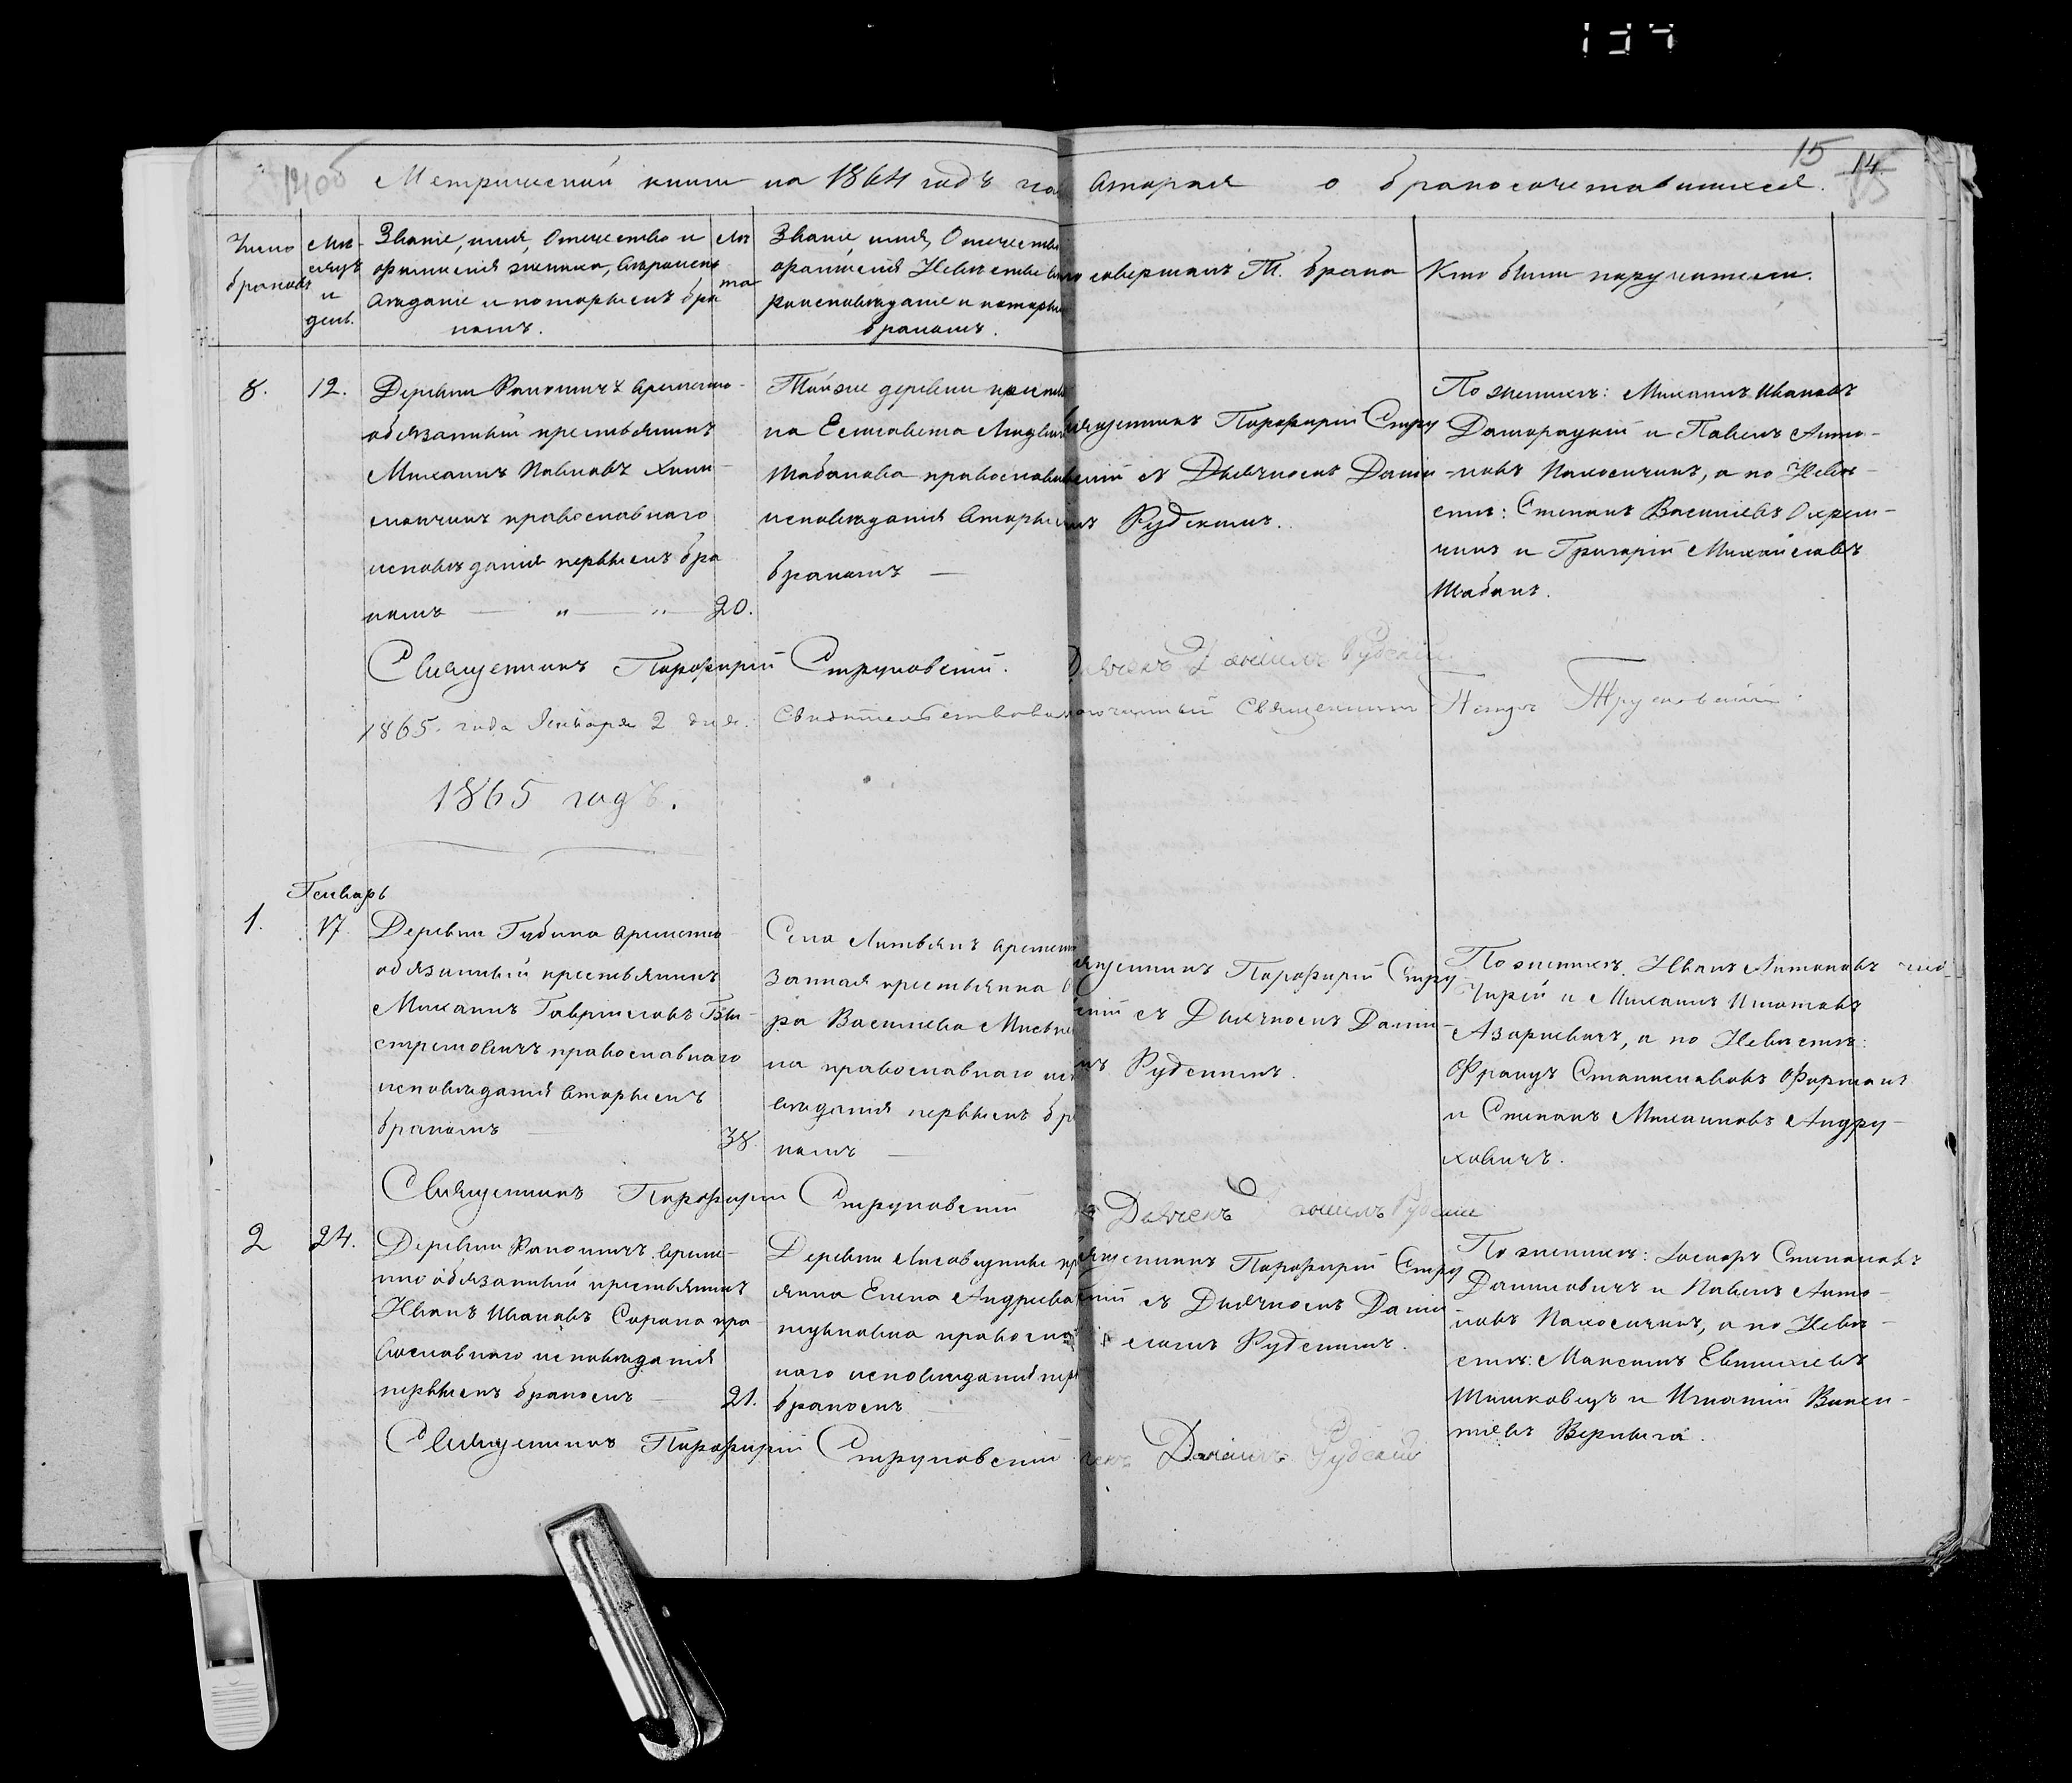 134
15
14
Метрической книги на 1864 годъ ча
вторая о бракосочетавшихся.
Число
браковъ
Мѣ-
сяцъ
и
день.
Званіе, имя, Отчество и
фамилія жениха, вѣроиспо
вѣданіе и которымъ бра
комъ.
Лѣ
та
Званіе, имя, Отчество
фамилія Невѣсты вѣ
роисповѣданіе и которы
бракомъ.
совершалъ Т. брака
Кто были поручители.
8.
12.
Деревни временно-
обязанный крестьянинъ
Михаилъ Павловъ
православнаго
исповѣданія первымъ бра
комъ — „ — „ — 20.
Тойже деревни крестьян
ка Елисавета
Шабанова православн
исповѣданія вторы
бракомъ —
Священникъ Порфирій Стру
скій съ Дьячкомъ Дані
мъ Рудскимъ.
По женихѣ: Михаилъ Ивановъ
и Павелъ Анто-
новъ а по Невѣ-
стѣ: Степанъ Васильевъ Охрем-
чикъ и Григорій Михайловъ
Шабанъ.
Священникъ Порфирій Струковскій.
Дьячекъ Даніилъ Рудскій
1865. года Января 2 дня. Свидѣтельствовалъ
Священникъ
1865 годъ.
Генварь
1.
17
Деревни Губина временно
обязанный крестьянинъ
Михаилъ Гавріиловъ Бы-
стримовичъ православнаго
исповѣданія вторымъ
бракомъ — 38
Села Литвянъ временно
занная крестьянка
ра Васильева
на православнаго исп
вѣданія первымъ бр
комъ —
ященникъ Порфирій Стру
скій съ Дьячкомъ Даніи-
мъ Рудскимъ.
По женихѣ. Иванъ Антоновъ
и Михаилъ Игнатовъ
Азаревичъ, а по Невѣстѣ:
Францъ Станиславовъ Фурманъ
и Степанъ Михаиловъ Андру-
ховичъ.
Священникъ Порфирій Струковскій
Дьячекъ Даніилъ Рудскій
2
24.
Деревни времен-
но обязанный крестьянинъ
Иванъ Ивановъ Сорока пра-
вославнаго исповѣданія
первымъ бракомъ — 21.
Деревни Лисовщины кр
янка Елена Андреева
православ
наго исповѣданія пер
бракомъ —
ященникъ Порфирій Стру
скій съ Дьячкомъ Дані
иломъ Рудскимъ.
По женихѣ: Іосифъ Степановъ
Даниловичъ и Павелъ Анто-
новъ а по Невѣ-
стѣ: Максимъ Евтихіевъ
Шишковецъ и Игнатій Викен-
тіевъ Верыга.
Священникъ Порфирій Струковскій
Даніилъ Рудскій